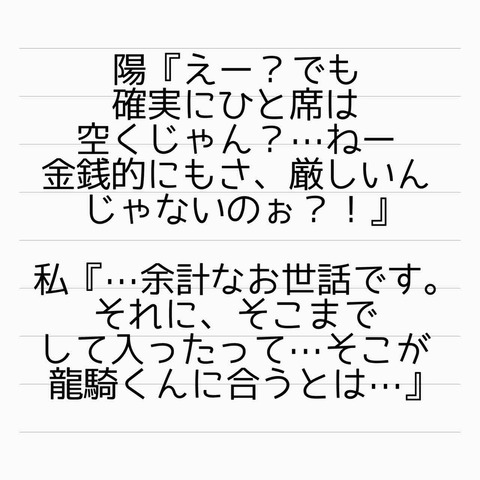 陽『えー？でも
確実にひと席は
空くじゃん？…ねー
金銭的にもさ、厳しいん
じゃないのぉ？！』
私『…余計なお世話です。
それに、そこまで
して入ったって…そこが
龍騎くんに合うとは…』